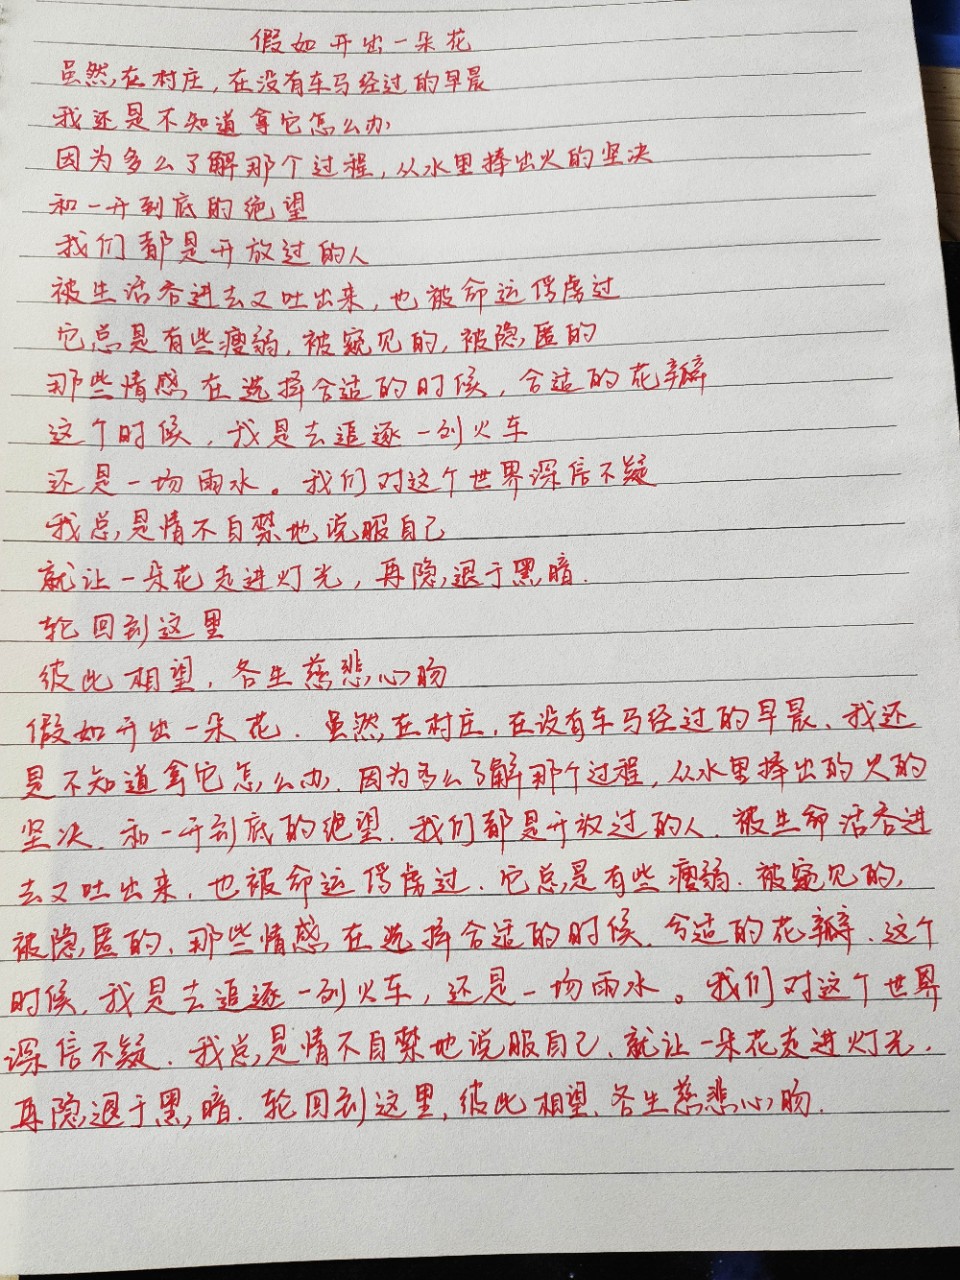 假如开出一朵花
虽然在村庄，在没有车马经过的早晨
我还是不知道拿它怎么办
因为多么了解那个过程，从水里捧出火的坚决
和一开到底的绝望
我们都是开放过的人
被生活吞进去又吐出来，也被命运俘虏过
它总是有些瘦弱，被窥见的，被隐匿的
那些情感在选择合适的时候，合适的花瓣
这个时候，我是去追逐一列火车
还是一场雨水。我们对这个世界深信不疑
我总是情不自禁地说服自己
就让一朵花走进灯光，再隐退于黑暗.
轮回到这里
彼此相望，各生慈悲心肠
假如开出一朵花.虽然在村庄，在没有车马经过的早晨、我还
是不知道拿它怎么办.因为多么了解那个过程，从水里捧出的火的
坚决、和一开到底的绝望.我们都是开放过的人.被生命活吞进
去又吐出来，也被命运俘虏过.它总是有些瘦弱.被窥见的，
被隐匿的、那些情感在选择合适的时候.合适的花瓣.这个
时候，我是去追逐一列火车，还是一场雨水。我们对这个世界
深信不疑.我总是情不自禁地说服自己、就让一朵花走进灯光，
再隐退于黑暗.轮回到这里，彼此相望、各生慈悲心肠.